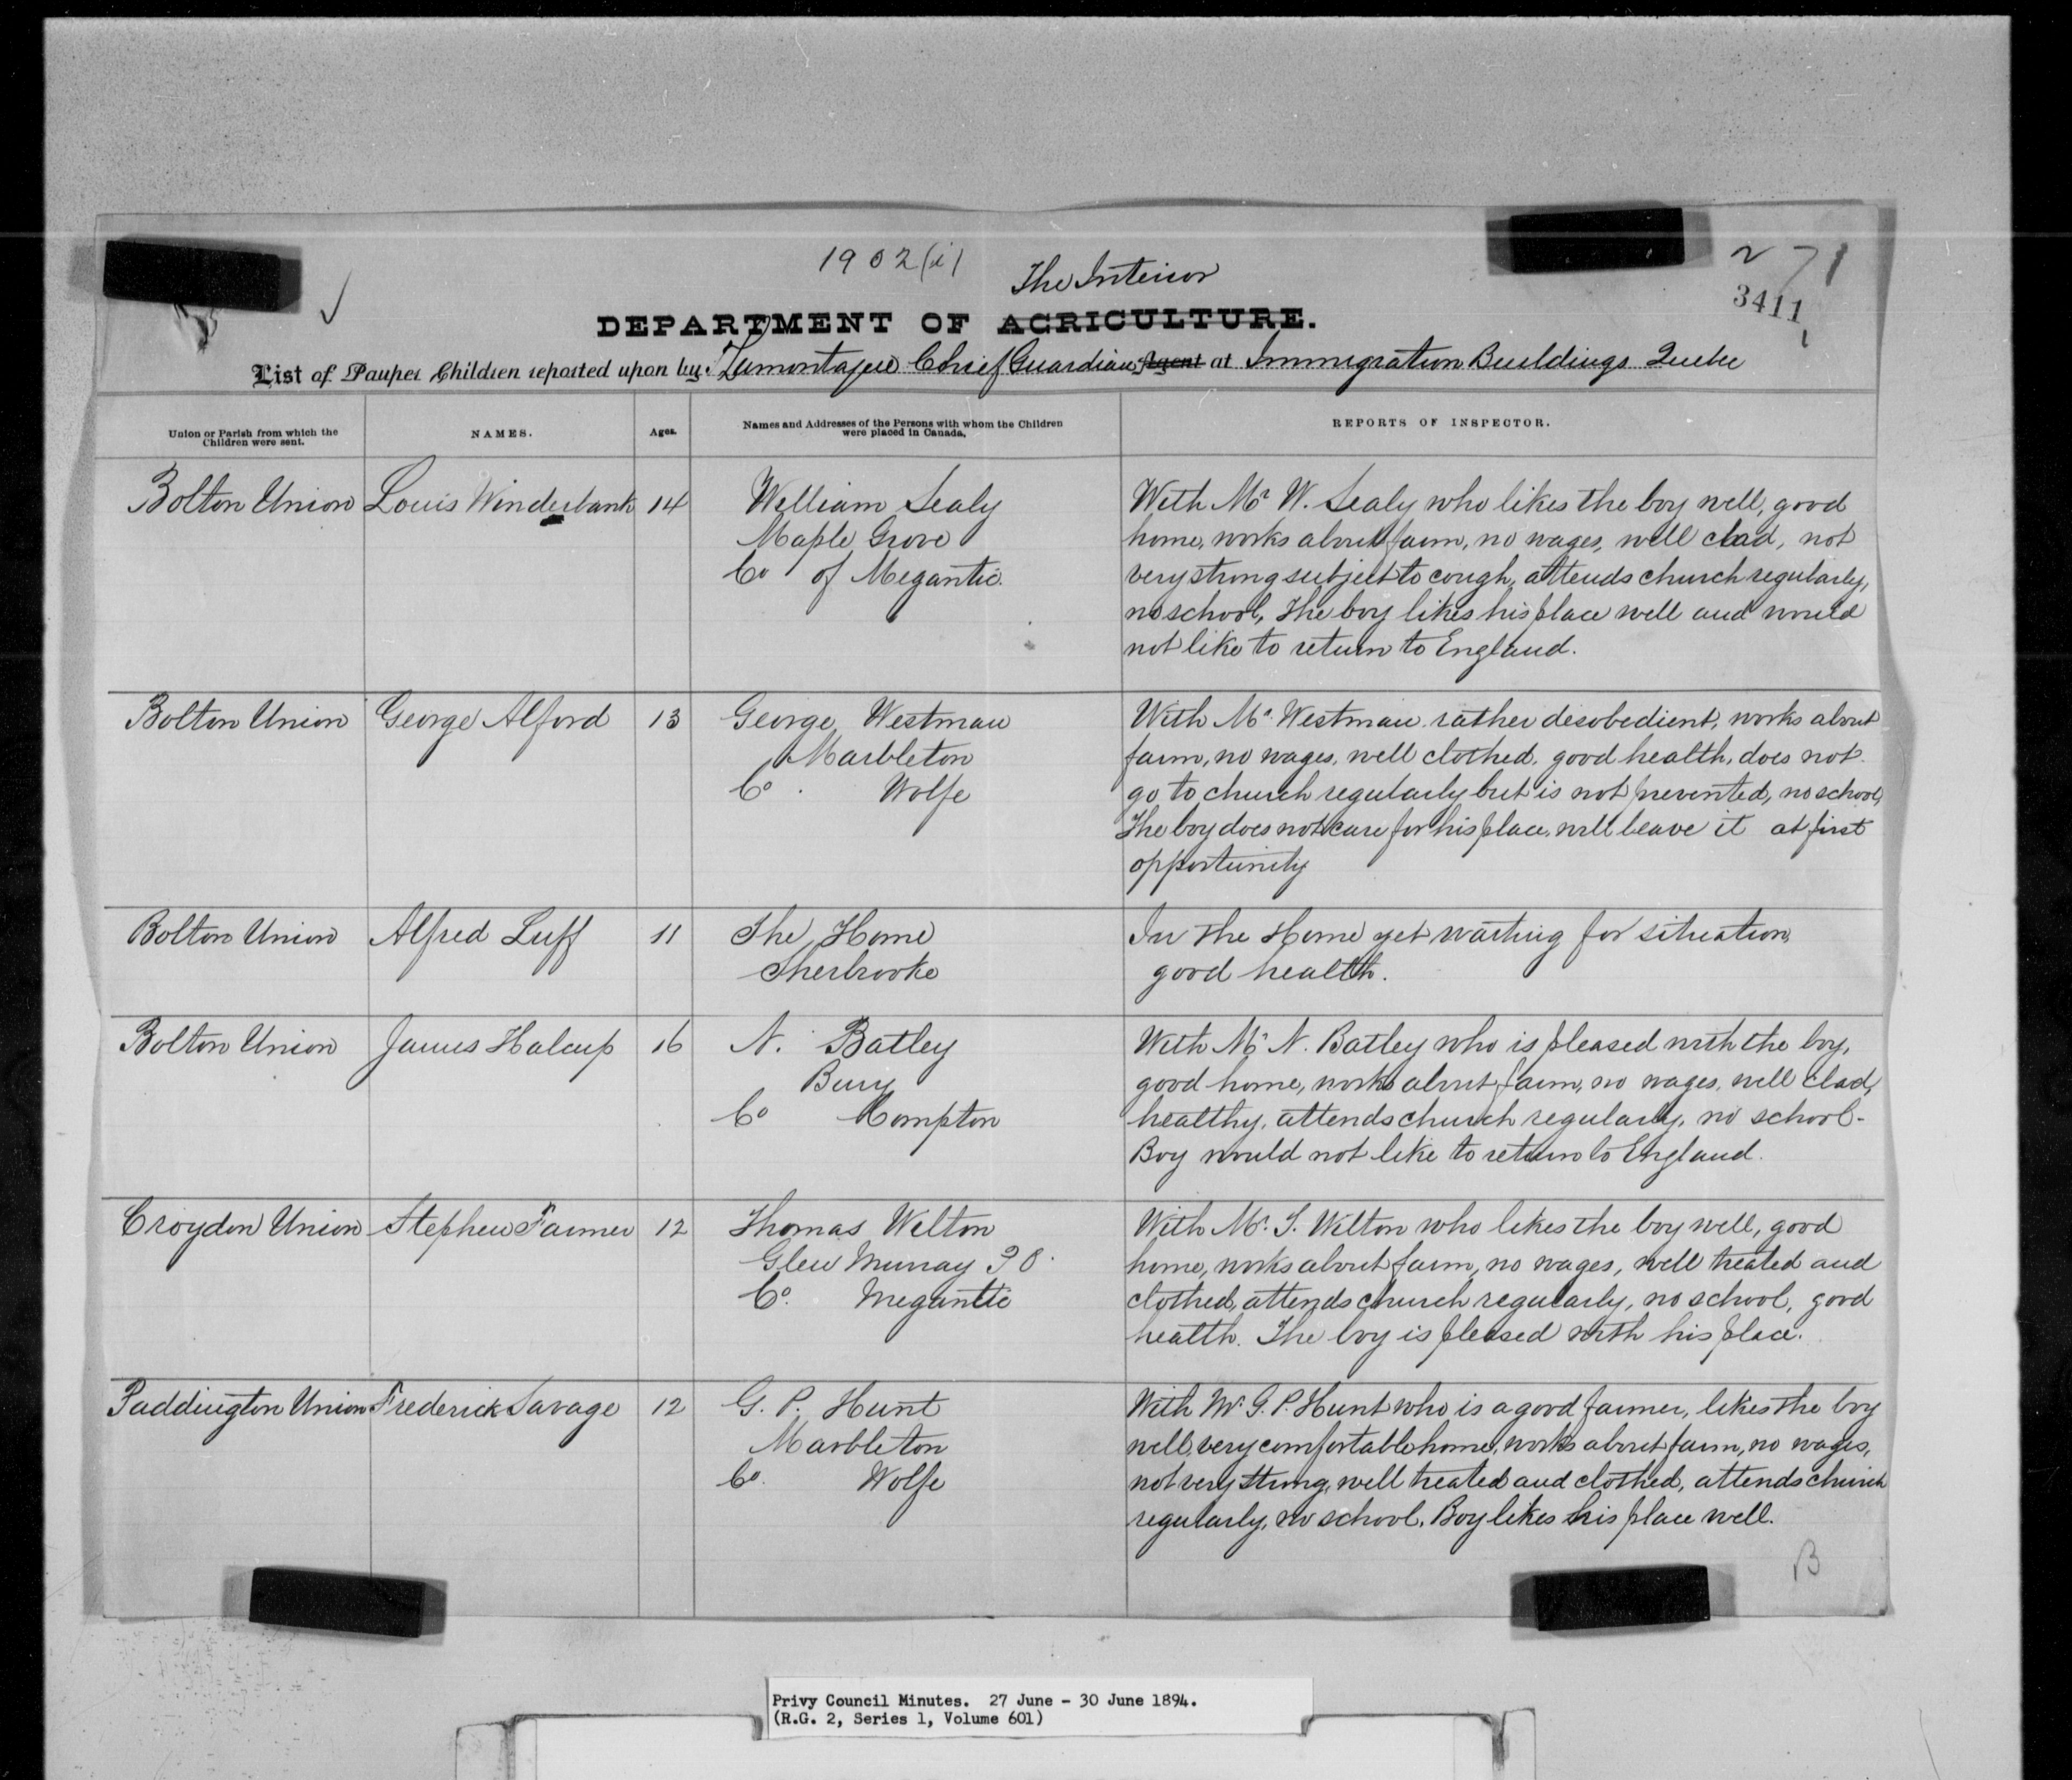 1902(i)
271
3411
The Interior
DEPARTMENT OF AGRICULTURE.
List of Pauper Children reported upon by Chief Guardian Agent at Immigration Buildings Quebec
Union or Parish from which the Children were sent.
NAMES.
Ages.
Names and Addresses of the Persons with whom the Children were placed in Canada.
REPORTS OF INSPECTOR.
Bolton Union Louis Winderbank 14
William Sealy
Maple Grove
Co of Megantic.
With Mr W. Sealy who likes the boy well, good
home, works about farm, no wages, well clad, not
very strong subject to cough, attends church regularly,
no school, The boy likes his place well and would
not like to return to England.
Bolton Union George Alford 13
George Westman
Marbleton
Co. Wolfe
With Mr. Westman rather desobedient, works about
farm, no wages, well clothed, good health, does not
go to church regularly but is not prevented, no school,
The boy does not care for his place, will leave it at first
opportunity
Bolton Union Alfred Luff 11
The Home
Sherbrooke
In the Home yet waiting for situation,
good health.
Bolton Union James Halcup 16
N. Batley
Bury
Co Compton
With Mr N. Batley who is pleased with the boy,
good home, works about farm, no wages, well clad,
healthy, attends church regularly, no school-
Boy would not like to return to England.
Croydon Union Stephen Farmer 12
Thomas Wilton
Glen Murray P O.
Co. Megantic
With Mr. T. Wilton who likes the boy well, good
home, works about farm, no wages, well treated and
clothed, attends church regularly, no school, good
health. The boy is pleased with his place.
Paddington Union Frederick Savage 12
G. P. Hunt
Marbleton
Co. Wolfe
With Mr. G. P. Hunt who is a good farmer, likes the boy
well, very comfortable home, works about farm, no wages,
not very strong, well treated and clothed, attends church
regularly, no school. Boy likes his place well.
B
Privy Council Minutes. 27 June - 30 June 1894.
(R.G. 2, Series 1, Volume 601)